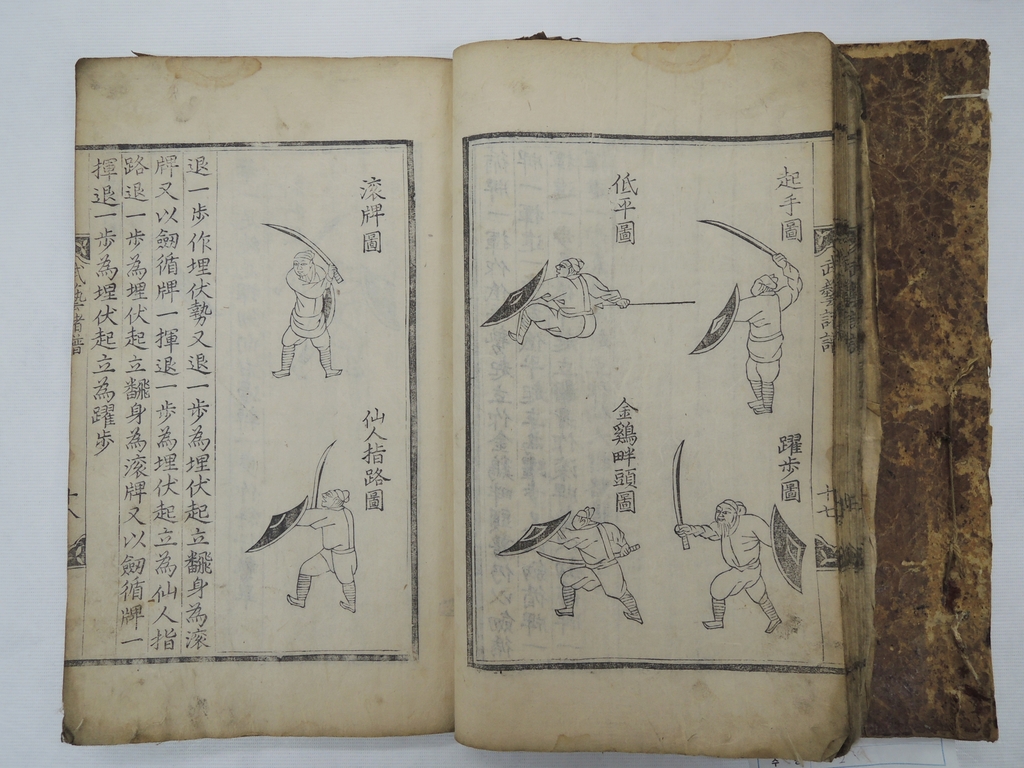 起手圖
躍步圖
低平圖
金鷄畔頭圖
武藝諸譜
十七
滚牌圖
仙人指路圖
退一步作埋伏勢又退一步為埋伏起立飜身為滚
牌又以劒循牌一揮退一步為埋伏起立為仙人指
路退一步為埋伏起立飜身為滚牌又以劒循牌一
揮退一步為埋伏起立為躍步
武藝諸譜
十八